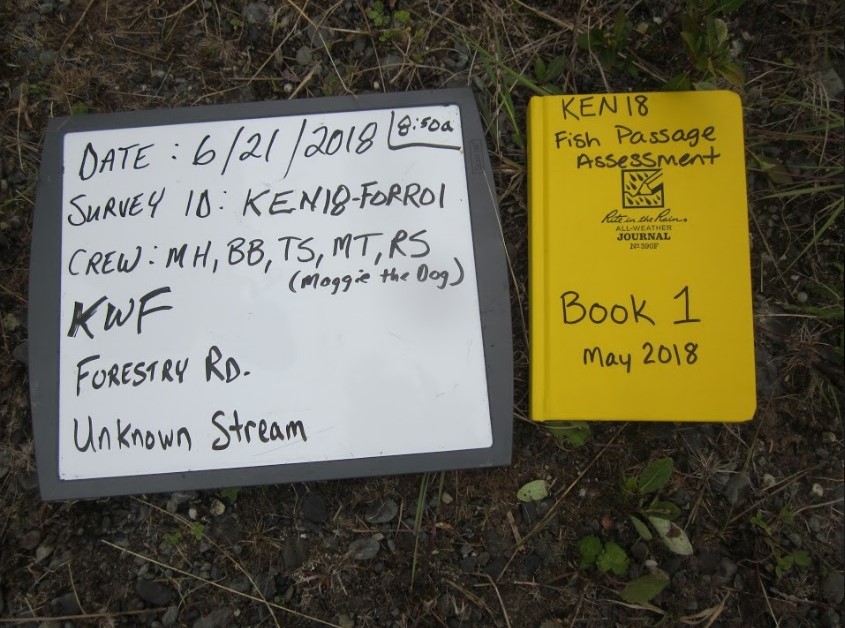 DATE: 6/21/2018 8:50a
SURVEY ID: KEN18-FORR01
CREW: MH, BB, TS, MT, RS
(Maggie the Dog)
KWF
FORESTRY RD.
Unknown Stream
KEN18
Fish Passage
Assessment
Rite in the Rain
ALL-WEATHER
JOURNAL
Nº 390F
Book 1
May 2018